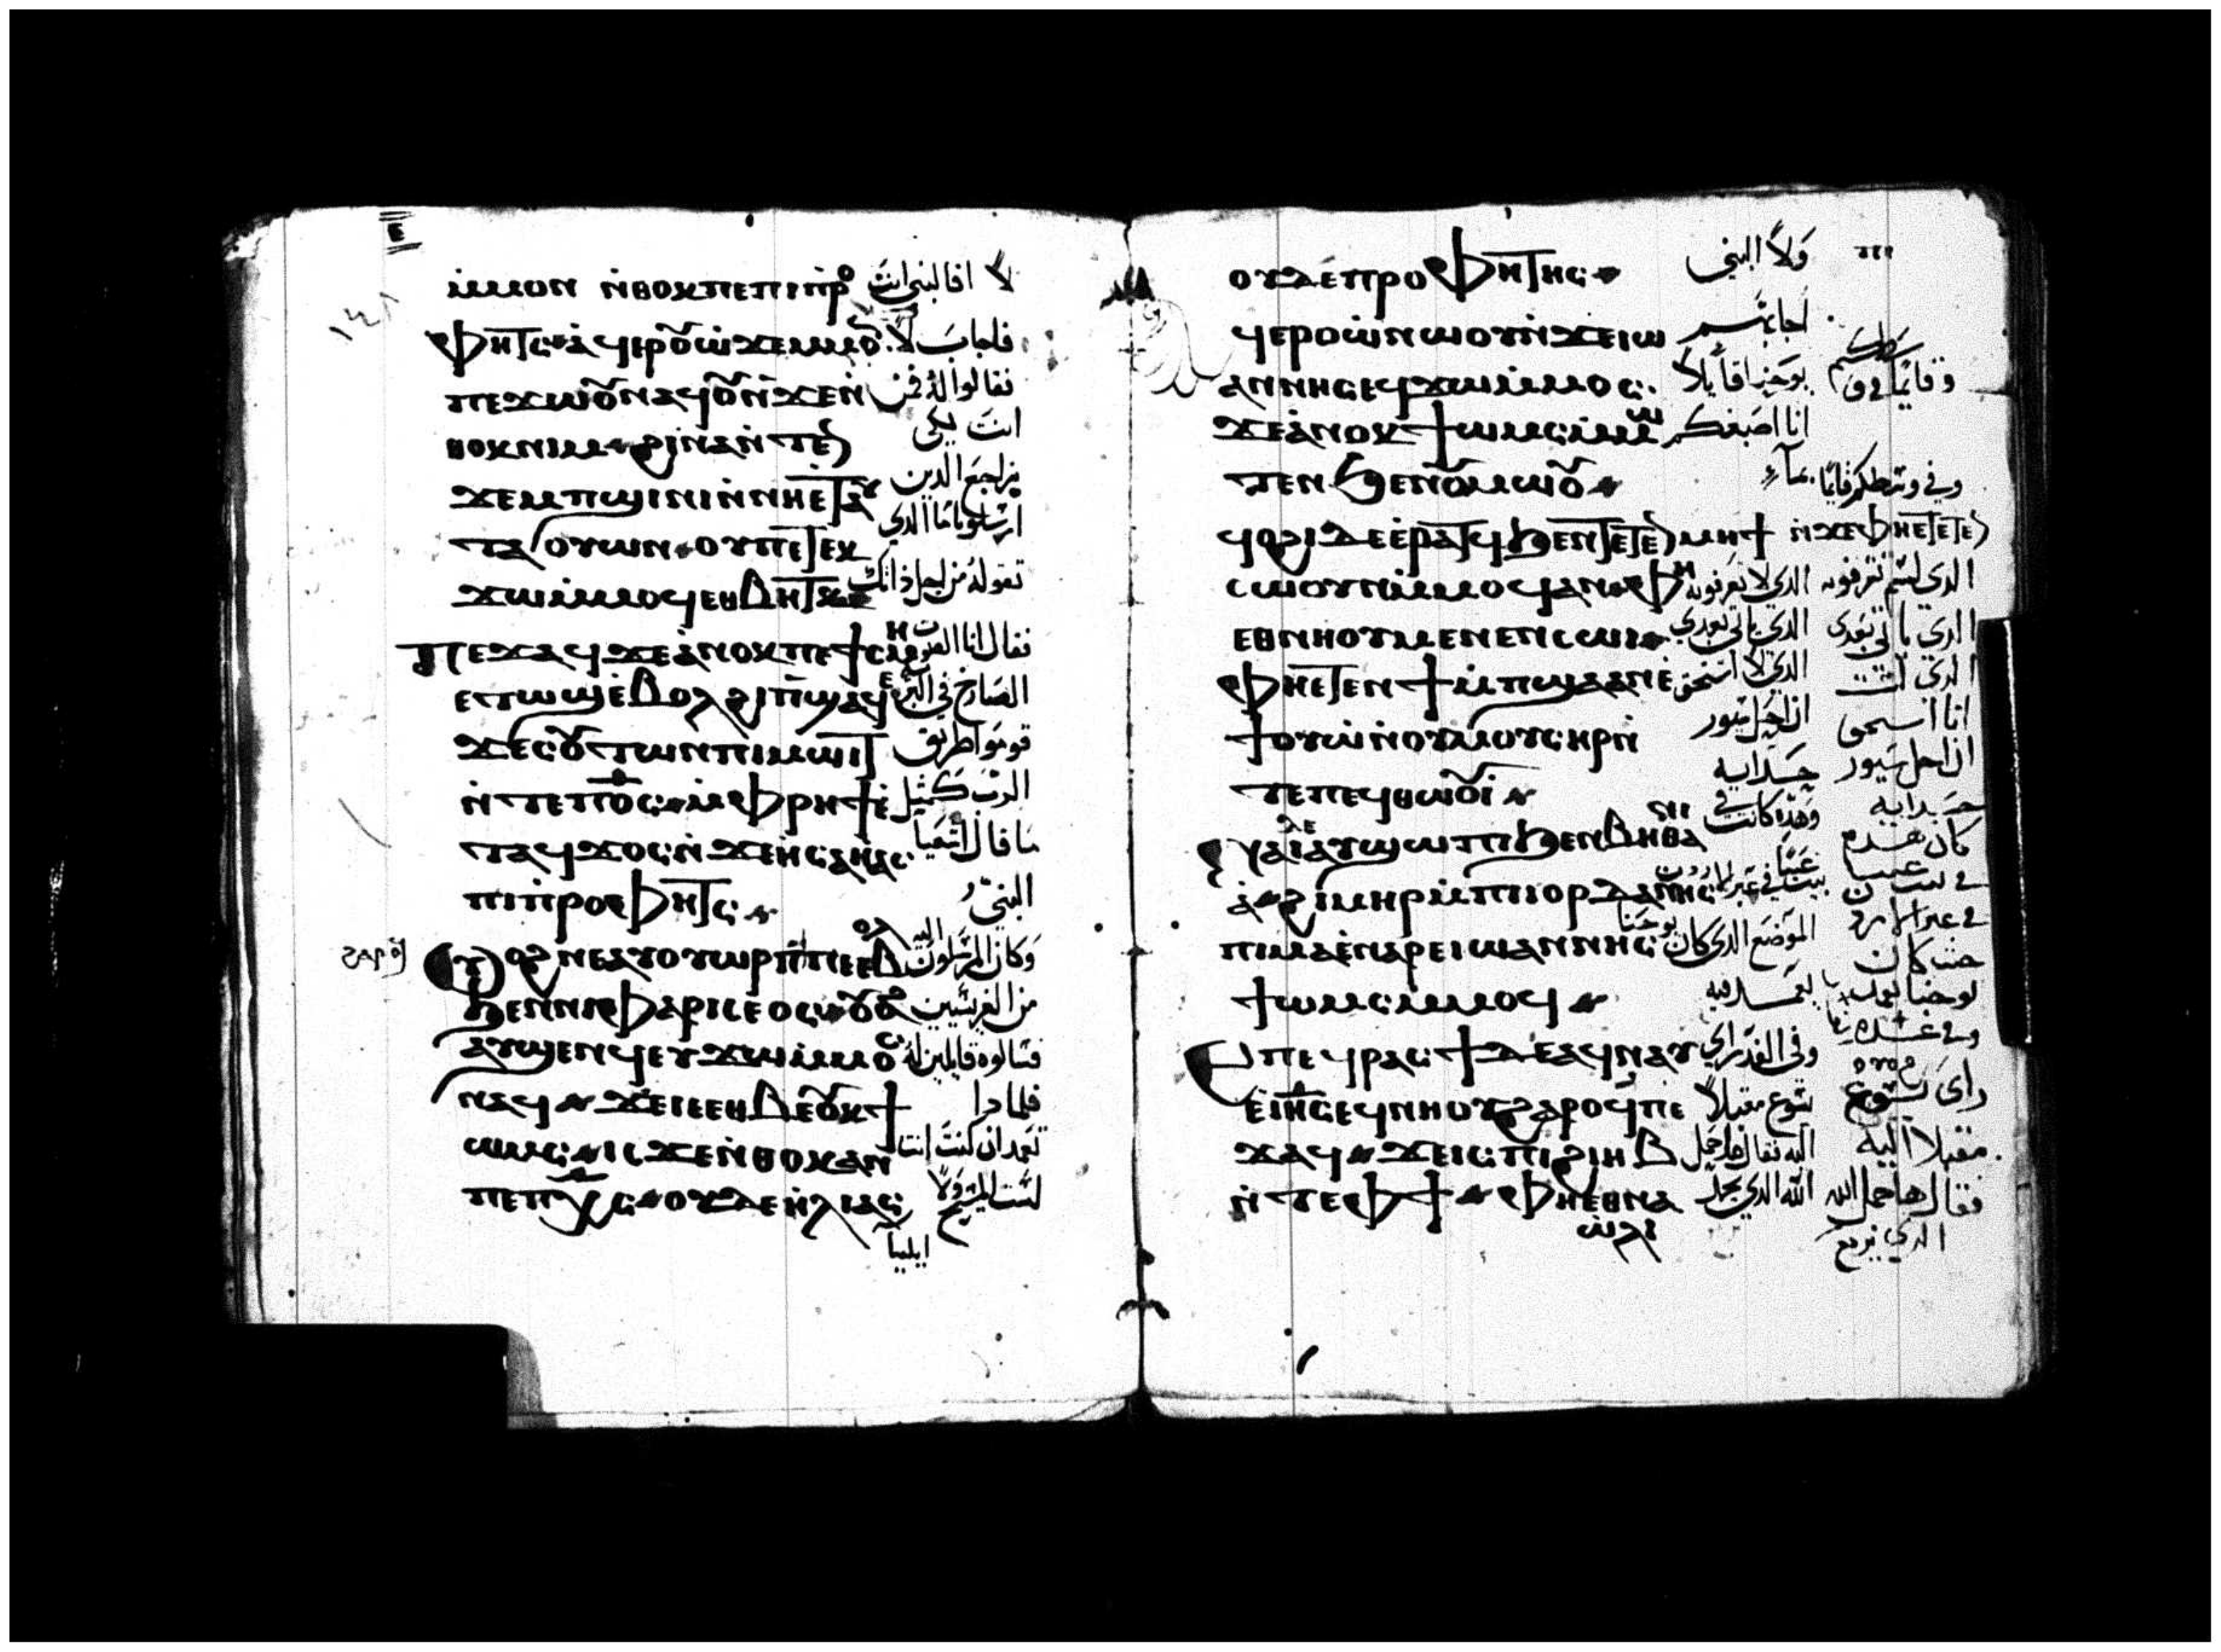 ⲉ
ⲙ̀ⲙⲟⲛ ⲛ̀ⲑⲟⲕ ⲡⲉ ⲡⲓⲡⲣⲟ لا افالنبي انت
ⲫⲏⲧⲥ ⲁϥⲉⲣⲟⲩⲱ̀ ϫⲉ ⲙ̀ⲙⲟ فاجاب لا
ⲡⲉϫⲱⲟⲩ ⲛⲁϥ ⲟⲩⲛ ϫⲉ ⲛ̀ فقالوا له فمن
ⲑⲟⲕ ⲛⲓⲙ ϩⲓⲛⲁ ⲛ̀ⲧⲉⲛ انت لكي
ϫⲉⲙⲡϣⲓⲛⲓ ⲛ̀ⲛⲏⲉⲧⲁⲩ نراجع الدين
ⲧⲁⲟⲩⲟⲛ ⲟⲩ ⲡⲉⲧⲉⲕ ارسلونا ما الدي
ϫⲱ ⲙ̀ⲙⲟϥ ⲉⲑⲃⲏⲧⲕ تقوله من اجل ذاتك
ⲡⲉϫⲁϥ ϫⲉ ⲁ̀ⲛⲟⲕ ⲡⲉ ϯⲥⲙⲏ فقال انا الصوت
ⲉⲧⲱϣ ⲉ̀ⲃⲟⲗ ϩⲓ ⲡϣⲁϥⲉ الصارخ في البرية
ϫⲉ ⲥⲟⲩⲧⲱⲛ ⲡⲓⲙⲱⲓⲧ قوموا طريق
ⲛ̀ⲧⲉ ⲡϭⲥ ⲙ̀ⲫⲣⲏϯ ⲉ̀ الرب كمثل
ⲧⲁϥϫⲟⲥ ⲛ̀ϫⲉ ⲏⲥⲁⲏⲁⲥ ما قال اشعيا
ⲡⲓⲡⲣⲟⲫⲏⲧⲥ النبي
ⲟⲩⲟϩ ⲛⲉⲁⲩⲟⲩⲱⲣⲡ ⲡⲉ ⲉⲃⲟⲗ وكان المرسلون
ϧⲉⲛ ⲛⲓⲫⲁⲣⲓⲥⲉⲟⲥ ⲟⲩⲟϩ من الفريسيين
ⲁⲩϣⲉⲛϥ ⲉⲩϫⲱ ⲙ̀ⲙⲟⲥ فسالوه قايلين له
ⲛⲁϥ ϫⲉ ⲓⲉ ⲉⲑⲃⲉⲟⲩ ⲕϯ فلمادا
ⲱⲙⲥ ⲓⲥϫⲉ ⲛ̀ⲑⲟⲕ ⲁⲛ تعمد ان كنت انت
ⲡⲉ ⲡⲭⲥ ⲟⲩⲇⲉ ⲏⲗⲓⲁⲥ لست المسيح ولا
ايليا
ⲟⲩⲇⲉ ⲡⲣⲟⲫⲏⲧⲏⲥ ولا النبي
ϥⲉⲣⲟⲩⲱ̀ ⲛⲱⲟⲩ ⲛ̀ϫⲉ ⲓⲱ اجابهم
ⲁⲛⲛⲏⲥ ⲉϥϫⲱ ⲙ̀ⲙⲟⲥ يوحنا قايلا
ϫⲉ ⲁ̀ⲛⲟⲕ ϯⲱⲙⲥ ⲙ̀ⲙⲱ انا اصبغكم
ⲧⲉⲛ ϧⲉⲛ ⲟⲩⲙⲱⲟⲩ بماء
ϥⲟϩⲓ ⲇⲉ ⲉ̀ⲣⲁⲧϥ ϧⲉⲛ ⲧⲉⲧⲉⲛⲙⲏϯ ⲛ̀ϫⲉ ⲫⲏⲉⲧⲉⲧⲉⲛ وفي وسطكم قايما
ⲥⲱⲟⲩⲛ ⲙ̀ⲙⲟϥ ⲁⲛ ⲫⲏ الدي لا تعرفونه الدي لستم تعرفونه
ⲉⲑⲛⲏⲟⲩ ⲙⲉⲛⲉⲛⲥⲱⲓ الدي ياتي بعدي الدي ياتي بعدي
ⲫⲏⲉⲧⲉⲛϯⲙ̀ⲡϣⲁ ⲁⲛ ⲉ̀ الدي لا استحق الدي لست
ϯⲟⲩⲱ̀ ⲛ̀ⲟⲩⲙⲟⲩⲥⲏⲣ ⲛ̀ ان احل سيور انا استحق
ⲧⲉ ⲡⲉϥⲑⲱⲟⲩⲓ حدايه ان احل سيور
ⲛⲁⲓ ⲇⲉ ⲁⲩϣⲱⲡⲓ ϧⲉⲛ ⲃⲏⲑⲁⲛⲓ وهذه كانت في حدايه
ⲁ ϩⲓⲙⲏⲣ ⲙ̀ⲡⲓⲓⲟⲣⲇⲁⲛⲏⲥ بيت عنيا في عبر الاردن كان هذه
ⲡⲓⲙⲁ ⲉ̀ⲛⲁⲣⲉ ⲓⲱⲁⲛⲛⲏⲥ الموضع الدي كان يوحنا حيث كان
ϯⲱⲙⲥ ⲙ̀ⲙⲟϥ يعمد فيه يوحنا يعمد
ⲡⲉϥⲣⲁⲥϯ ⲇⲉ ⲁϥⲛⲁⲩ وفي الغد راي
ⲉ̀ⲓⲏⲥ ⲉϥⲛⲏⲟⲩ ϩⲁⲣⲟϥ ⲡⲉ يسوع مقبلا راى يسوع
ϫⲁϥ ϫⲉ ⲓⲥ ⲡⲓϩⲓⲏⲃ اليه فقال هدا حمل مقبلا اليه
ⲛ̀ⲧⲉ ⲫϯ ⲫⲏⲉⲑⲛⲁ الله الدي يحمل فقال هدا حمل الله
ⲱ̀ⲗⲓ الدي يرفع